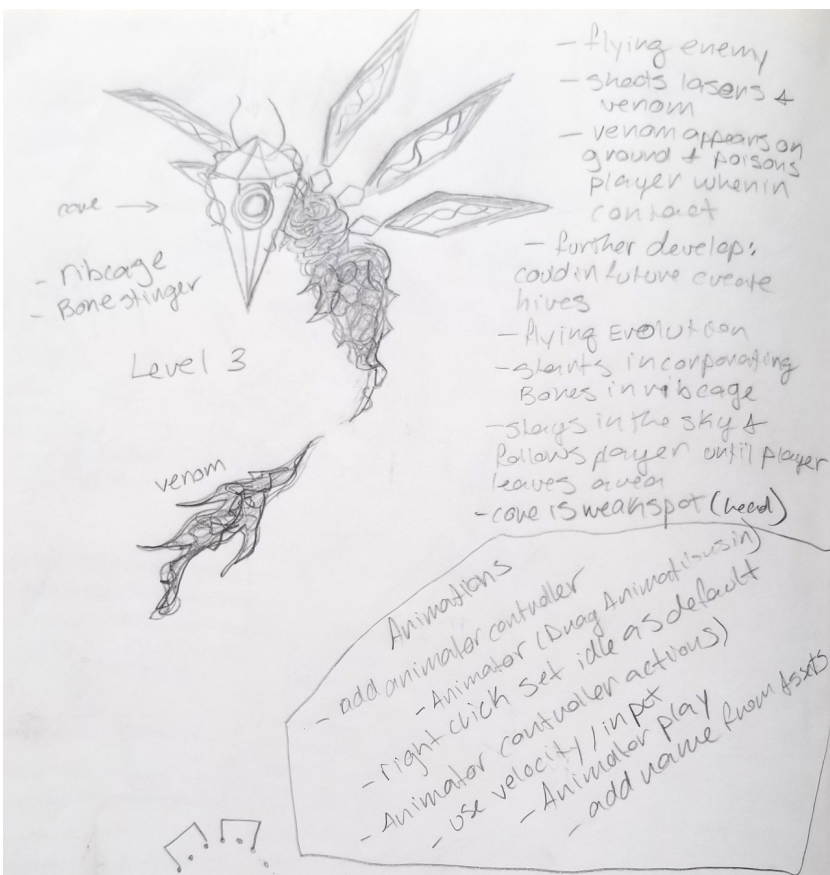 - flying enemy
- shoots lasers &
venom
- venom appears on
ground & poisons
player when in
contact
- further develop:
could in future create
hives
- flying Evolution
- starts incorporating
Bones in ribcage
- stays in the sky &
follows player until player
leaves area
- core is weakspot (head)
core →
- ribcage
- Bone stinger
Level 3
venom
Animations
- add animator controller
- Animator (Drag Animations in)
- right click set idle as default
- Animator controller actions)
- use velocity/input
- Animator play
- add name from Assets